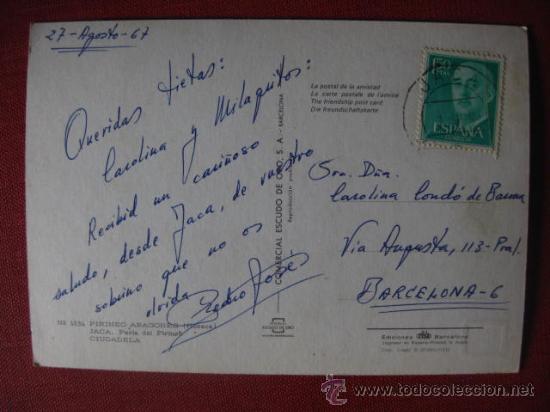 27-Agosto-67
Queridas tietas:
Carolina y Milagritos:
Recibid un cariñoso
saludo, desde Jaca, de vuestro
sobrino que no os
olvida
Pedro José
PIRINEO ARAGONES
JACA. Perla del Pirineo
CIUDADELA
COMERCIAL ESCUDO DE ORO, S. A. - BARCELONA
La postal de la amistad
La carte postale de l'amitié
The friendship post card
Die Freundschaftskarte
ESPAÑA
Sra. Dña.
Carolina Condó de
Via Augusta, 113-Pral.
BARCELONA-6
Ediciones Barcelona
todocoleccion.net